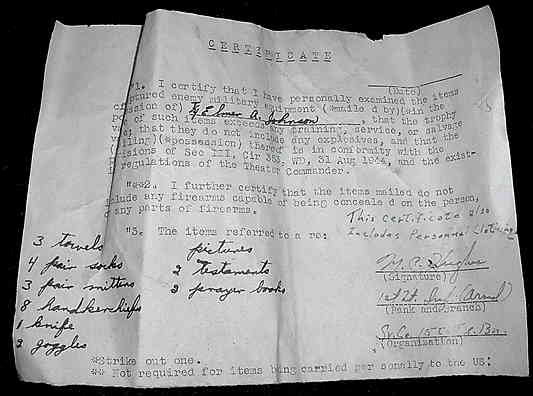 CERTIFICATE
(Date)
"1. I certify that I have personally examined the items
captured enemy military equipment (*mailed by)(in the
possession of) Elmer A. Johnson, that the trophy
of such items exceeds any training, service, or salvage
that they do not include any explosives, and that the
(mailing)(*possession) thereof is in conformity with the
provisions of Sec III, Cir 353, WD, 31 Aug 1944, and the exist-
regulations of the Theater Commander.
"**2. I further certify that the items mailed do not
include any firearms capable of being concealed on the person,
any parts of firearms.
This Certificate also
Includes Personnal Clothing
"3. The items referred to are:
3 towels
4 pair socks
3 pair mittens
8 handkerchiefs
1 knife
2 goggles
pictures
2 Testaments
2 prayer books
(Signature)
1st Lt.
(Rank and Branch)
(Organization)
*Strike out one.
** Not required for items being carried personally to the US: